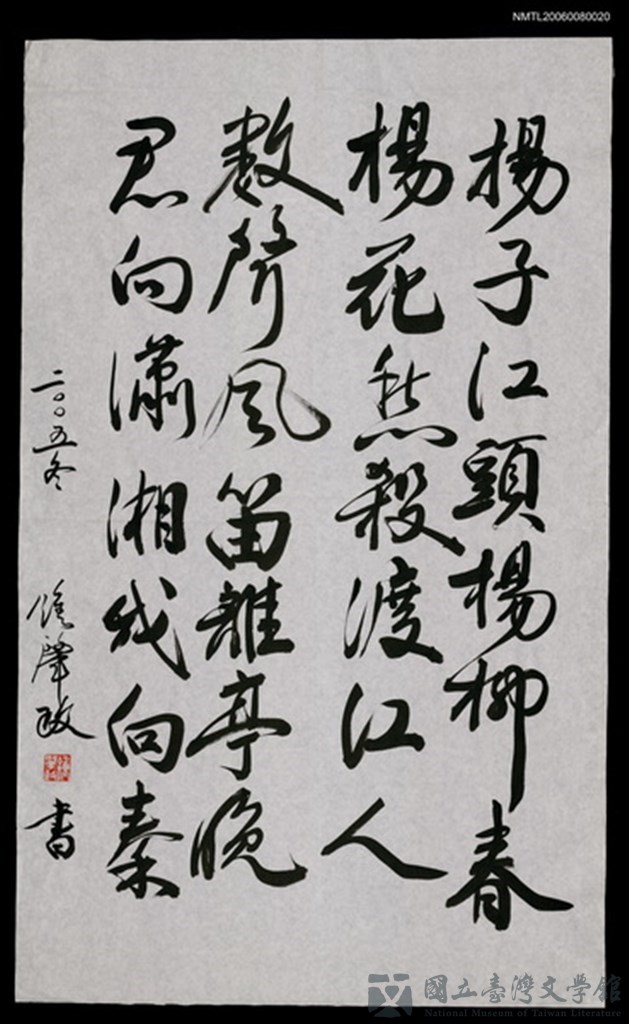 NMTL20060080020
楊子江頭楊柳春
楊花愁殺渡江人
數聲風笛離亭晚
君向瀟湘我向秦
二〇〇五冬
肇政
書
國立臺灣文學館
National Museum of Taiwan Literature